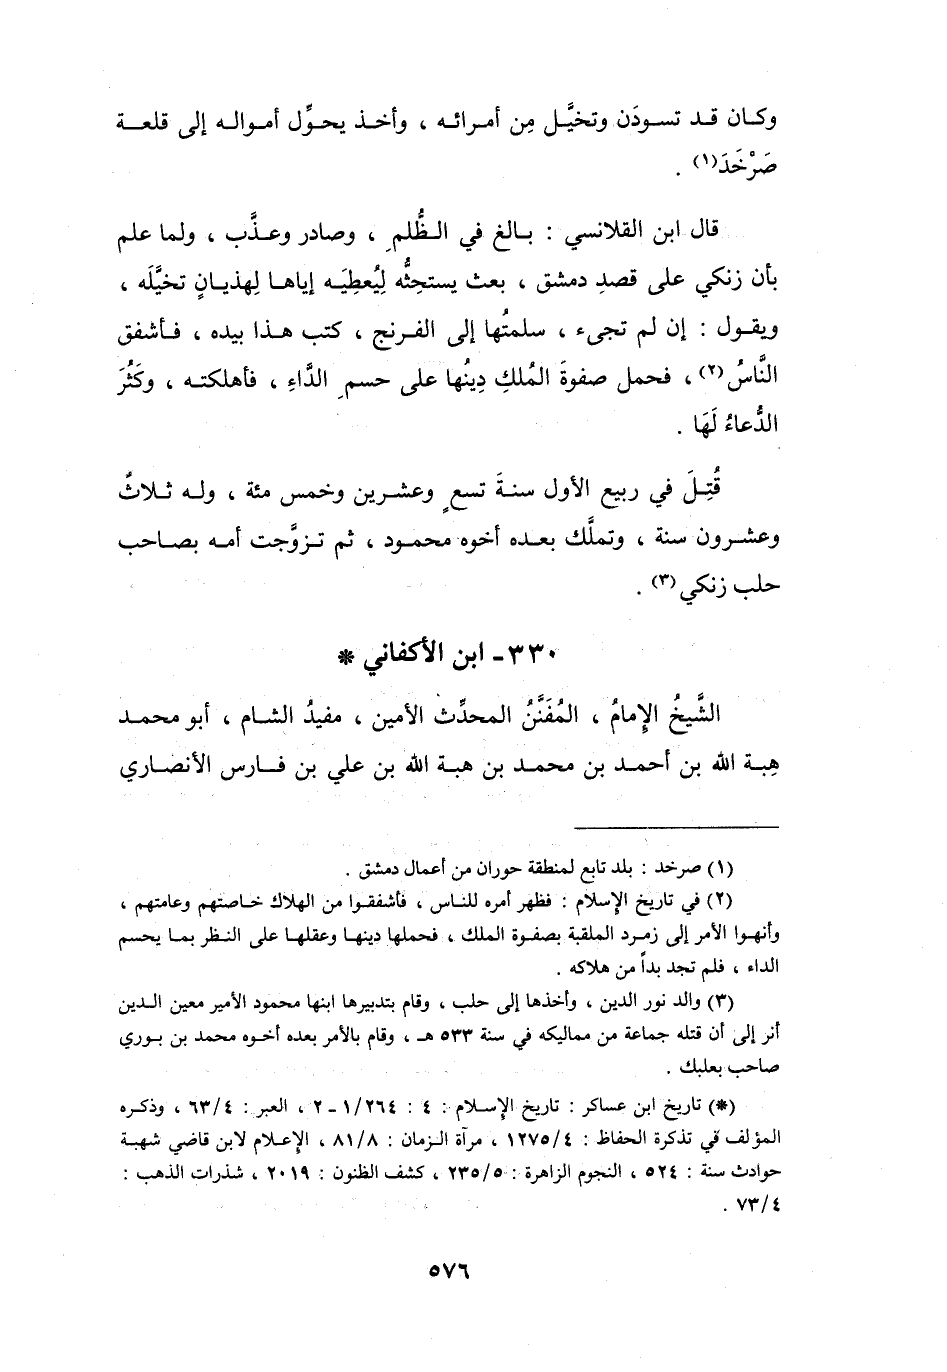 وكان قد تسودَن وتخيَّل مِن أمرائه ، وأخذ يحوِّل أمواله إلى قلعة
صَرْخَدَ(١) .
قال ابن القلانسي : بالغ في الظُّلمِ ، وصادر وعذَّب ، ولما علم
بأن زنكي على قصدِ دمشق ، بعث يستحِثُّه لِيُعطِيَه إياها لِهذيانٍ تخيَّلَه ،
ويقول : إن لم تجىء ، سلمتُها إلى الفرنج ، كتب هذا بيده ، فأشفق
النَّاسُ(٢) ، فحمل صفوةَ المُلكِ دِينُها على حسمِ الدَّاءِ ، فأهلكته ، وكَثُرَ
الدُّعاءُ لَهَا .
قُتِلَ في ربيع الأول سنةَ تسعٍ وعشرين وخمس مئة ، وله ثلاثٌ
وعشرون سنة ، وتملَّك بعده أخوه محمود ، ثم تزوَّجت أمه بصاحب
حلب زنكي(٣) .
٣٣٠- ابن الأكفاني *
الشَّيخُ الإمامُ ، المُفَنَّنُ المحدِّث الأمين ، مفيدُ الشام ، أبو محمد
هِبة الله بن أحمد بن محمد بن هبة الله بن علي بن فارس الأنصاري
(١) صرخد : بلد تابع لمنطقة حوران من أعمال دمشق .
(٢) في تاريخ الإسلام : فظهر أمره للناس ، فأشفقوا من الهلاك خاصتهم وعامتهم ،
وأنهوا الأمر إلى زمرد الملقبة بصفوة الملك ، فحملها دينها وعقلها على النظر بما يحسم
الداء ، فلم تجد بداً من هلاكه .
(٣) والد نور الدين ، وأخذها إلى حلب ، وقام بتدبيرها ابنها محمود الأمير معين الدين
أنر إلى أن قتله جماعة من مماليكه في سنة ٥٣٣ هـ ، وقام بالأمر بعده أخوه محمد بن بوري
صاحب بعلبك .
(*) تاريخ ابن عساكر : تاريخ الإسلام : ٤ : ١/٢٦٤ - ٢ ، العبر : ٦٣/٤ ، وذكره
المؤلف في تذكرة الحفاظ : ١٢٧٥/٤ ، مرآة الزمان : ٨١/٨ ، الإعلام لابن قاضي شهبة
حوادث سنة : ٥٢٤ ، النجوم الزاهرة : ٢٣٥/٥ ، كشف الظنون : ٢٠١٩ ، شذرات الذهب :
٧٣/٤ .
٥٧٦